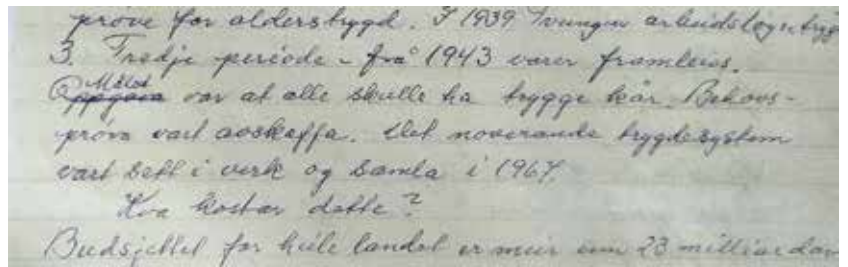 prøve for alderstrygd. I 1939 Tvungen arbeidsløysetryg
3. Tredje periode - frå 1943 varer framleis.
Oppgåva Målet var at alle skulle ha trygge kår. Behovs-
prøva vart avskaffa. Det noverande trygdesystem
vart sett i verk og samla i 1967.
Kva kostar dette?
Budsjettet for heile landet er meir enn 23 milliardar